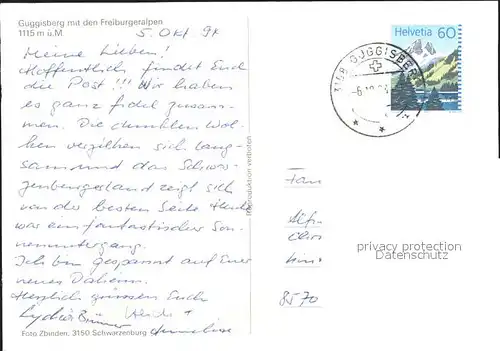 Guggisberg mit den Freiburgeralpen
1115 m ü.M.
5. Okt 91
Meine Lieben!
Hoffentlich findet Euch
die Post!!! Wir haben
es ganz fidel zusam-
men. Die dunklen Wol-
ken verziehen sich lang-
sam und das Schwar-
zenburgerland zeigt sich
von der besten Seite. Heute
war ein fantastischer Son-
nenuntergang.
Ich bin gespannt auf Euer
neues Daheim.
Herzlich grüssen Euch
Lydia Heidi +
Foto Zbinden, 3150 Schwarzenburg
Reproduktion verboten
Helvetia 60
GUGGISBERG
Fam
8570
privacy protection
Datenschutz